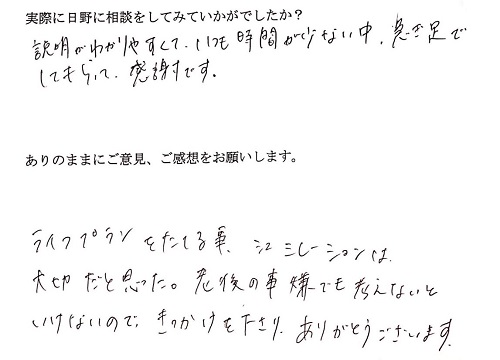 実際に日野に相談をしてみていかがでしたか？
説明がわかりやすくて、いつも時間が少ない中、急ぎ足で
してもらって、感謝です。
ありのままにご意見、ご感想をお願いします。
ライフプランをたてる事、シュミレーションは、
大切だと思った。老後の事嫌でも考えないと
いけないので、きっかけを下さり、ありがとうございます。